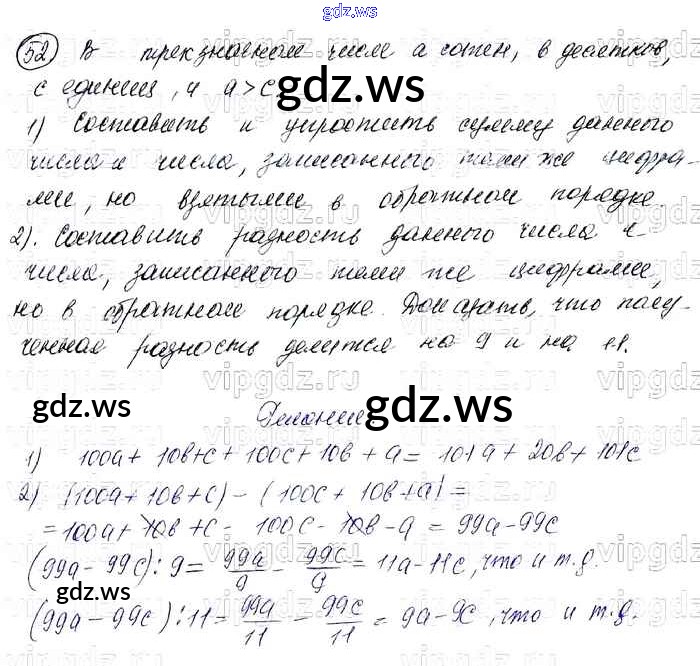 gdz.ws
52 В трехзначном числе a сотен, b десятков,
c единиц, и a > c gdz.ws
1) Составить и упростить сумму данного
числа и числа, записанного теми же цифра-
ми, но взятыми в обратном порядке.
2). Составить разность данного числа и
числа, записанного теми же цифрами,
но в обратном порядке. Доказать, что полу-
ченная разность делится на 9 и на 11.
gdz.ws gdz.ws
Решение
1) 100a + 10b + c + 100c + 10b + a = 101a + 20b + 101c
2) (100a + 10b + c) - (100c + 10b + a) =
= 100a + 10b + c - 100c - 10b - a = 99a - 99c
(99a - 99c) : 9 = 99a/9 - 99c/9 = 11a - 11c, что и т.д.
gdz.ws gdz.ws
(99a - 99c) : 11 = 99a/11 - 99c/11 = 9a - 9c, что и т.д.